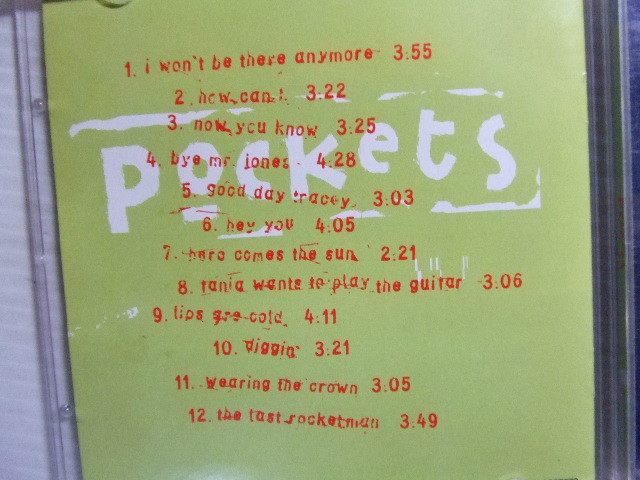 1. i won't be there anymore 3:55
2. how can i 3:22
3. now you know 3:25
pockets
4. bye mr. jones 4:28
5. good day tracey 3:03
6. hey you 4:05
7. here comes the sun 2:21
8. tania wants to play the guitar 3:06
9. lips are cold 4:11
10. diggin' 3:21
11. wearing the crown 3:05
12. the last rocketman 3:49